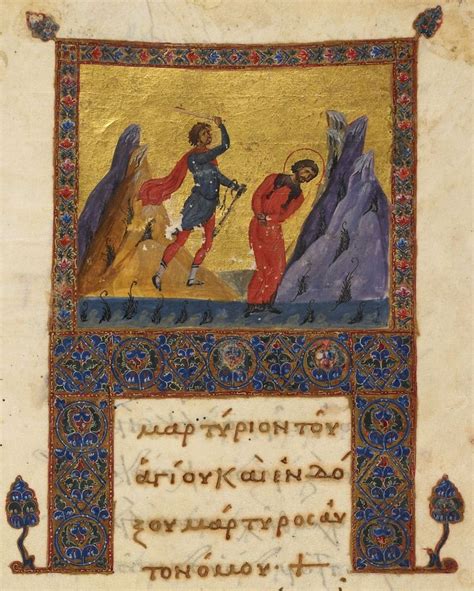 μαρτύριον τοῦ
ἁγίου καὶ ἐνδό
ξου μάρτυρος αὐ
τονόμου· +